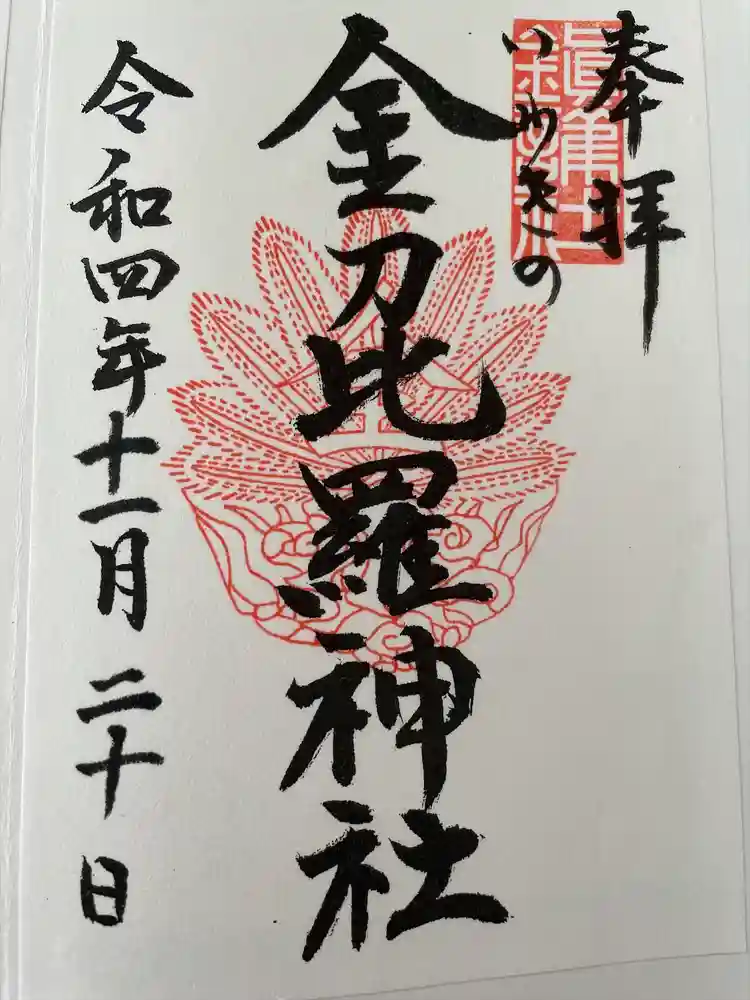 奉拝
いわき の
金刀比羅神社
令和四年十一月二十日